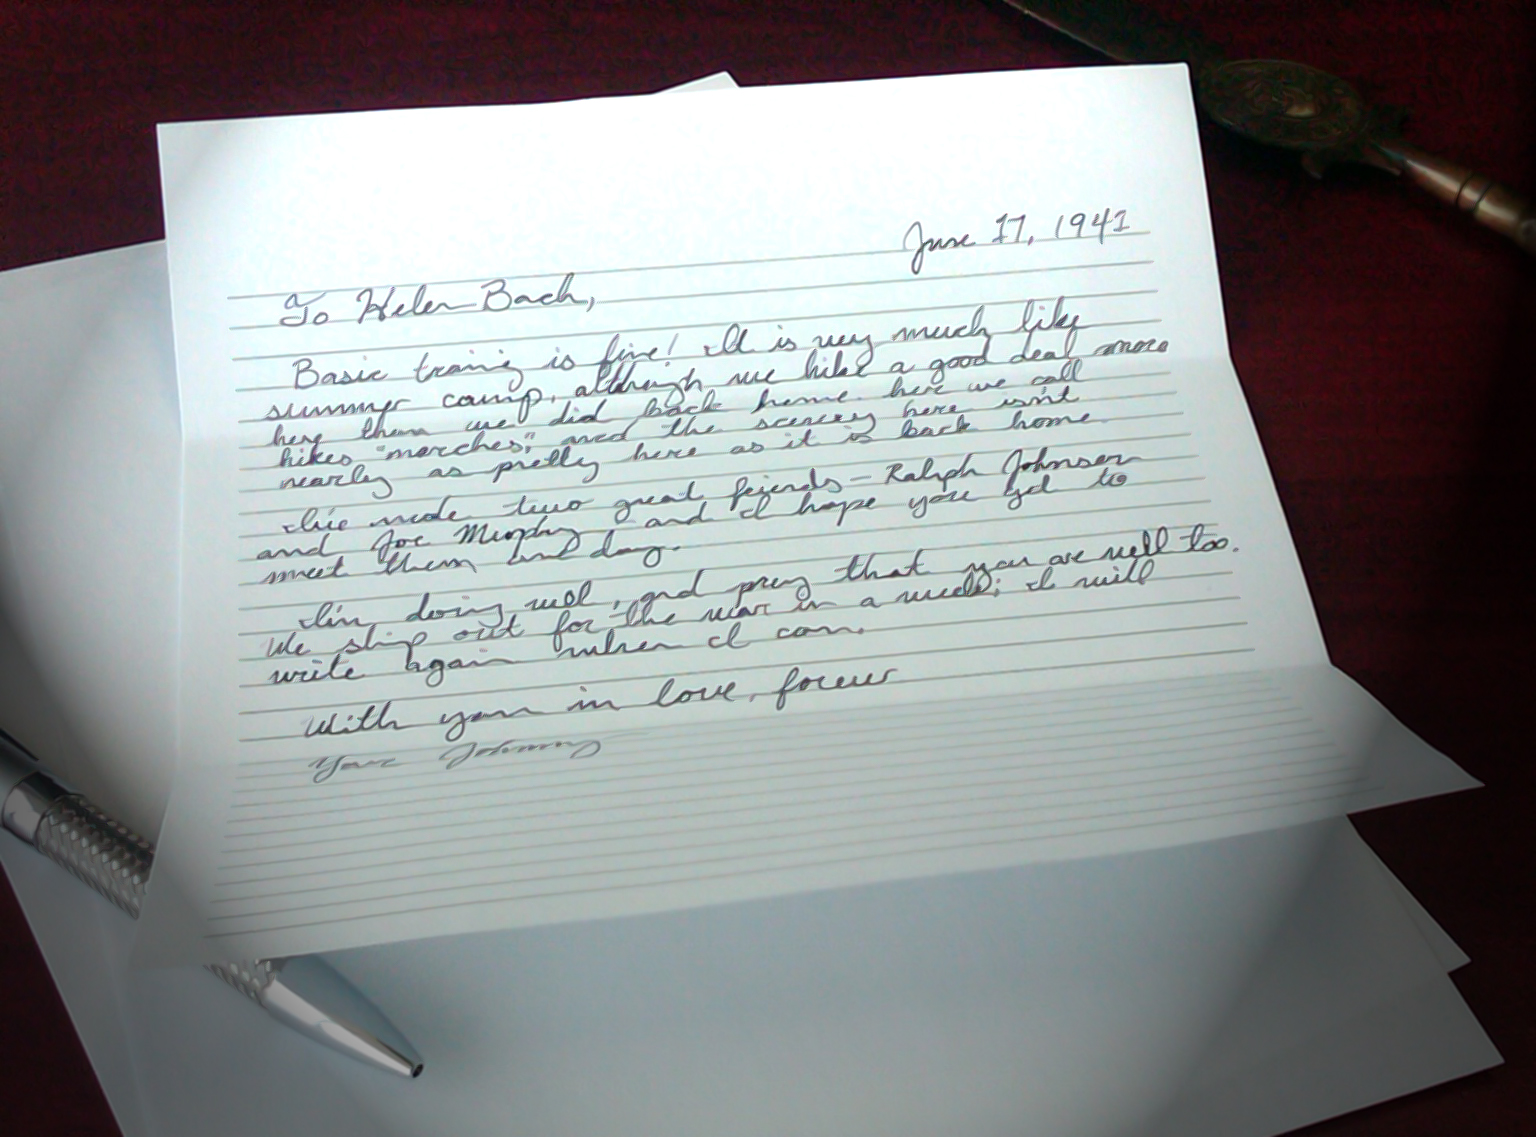 June 17, 1941
To Helen Bach,
Basic traing is fine! It is very much like
summer camp, although we hike a good deal more
here then we did back home. here we call
hikes "marches," and the scenery here isn't
nearley as pretty here as it is back home.
I've made two great feiends — Ralph Johnson
and Joe Murphy and I hope you get to
meet them day.
I'm doing well, and pray that you are well too.
We ship out for the war in a week; I will
write again when I can.
With you in love, forever
Your Johnny